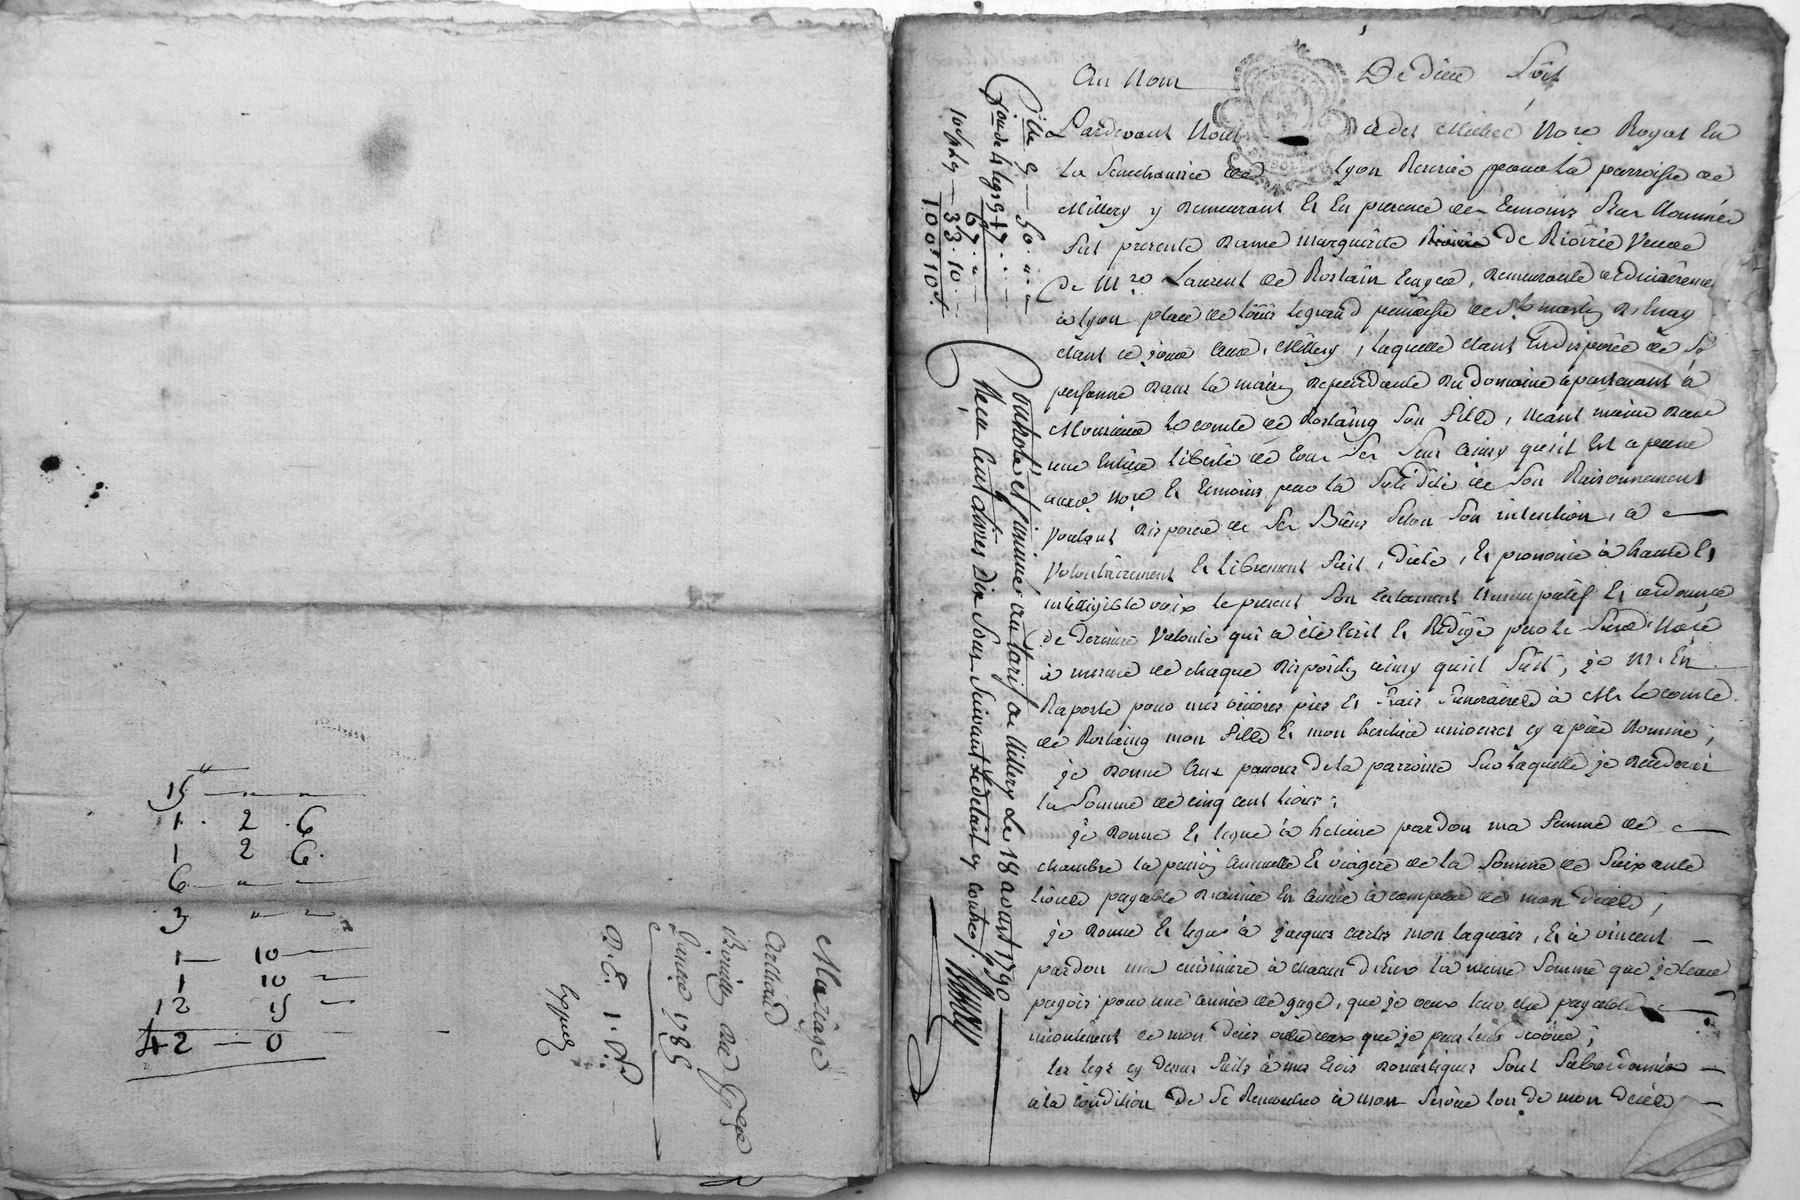 15 — " — "
1 . 2 . 6
1 2 6.
6 — " —
3 " —
1 — 10 —
1 10 —
12 15 —
42 — 0
Mariage
Janvier 1785
Au Nom De Dieu Soit
Pardevant Nous Nore Royal En
la Senechaussée de Lyon Reservé pour la parroisse de
Millery y demeurant Et En presence des temoins Bas Nommés
fut presente Dame marguerite De Rivirie Veuve
De Mre Laurent de Rostain Ecuyer, demeurante ordinairement
à Lyon place de Louis legrand parroisse de St martin D'Enay
etant ce jour audt Millery, laquelle etant Indisposée de Sa
personne dans la maison dependante du domaine apartenant à
Monsieur le comte de Rostaing Son fils, neant moins dans
une Entiere liberté de tous Ses Sens ainsy qu'il Est aparu
audt nore Et temoins par la Solidité de Son Raisonnement
Voulant disposer de Ses Biens Selon Son intention, a
Volontairement Et librement fait, dicté, Et prononcé à haute Et
intelligible voix le present Son testament Nuncupatif Et ordonnance
de derniere Volonté qui a été Ecrit Et Redigé par le Susd Noré
à mesure de chaque disposition ainsy qu'il Suit, je m'En
Raporte pour mes œuvres pies Et frais funeraires à Mr le comte
de Rostaing mon fils Et mon heritier universel cy apres Nommé;
je donne aux pauvres de la parroisse Sur laquelle je decederai
la Somme de cinq cent livres;
je donne Et legue à helaine pardon ma femme de
chambre la pension annuelle Et viagere de la Somme de Soixante
livres payable d'année En année à compter de mon decès;
je donne Et legue à jacques carles mon laquais, Et à vincent
pardon ma cuisiniere à chacun d'Eux la meme Somme que je leur
payois pour une année de gage, que je veux leur etre payable
incontinent de mon deces outre ceux que je peux leurs devoir;
les legs cy dessus faits à mes trois domestiques Sont Subordonnés
à la condition De Se Rencontrer à mon Service lors de mon decès
Clle 9 — 50 . " . "
Don de 4 legs 9tt 17 . " .
67 . " —
10s p lt — 33 . 10 . —
100tt 10s.
Controlé et Insinué au tarif a Millery le 18 avril 1790
Recu Cent livres Dix Sous Suivant Le detail cy contre.